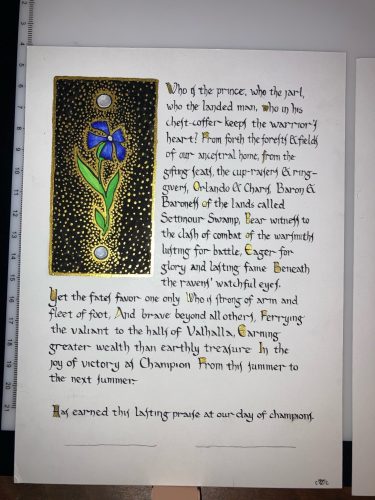 Who is the prince, who the jarl,
who the landed man, who in his
chest-coffer keeps the warrior's
heart? From forth the forests & fields
of our ancestral home, from the
gifting seats, the cup-raisers & ring-
givers, Orlando & Charis, Baron &
Baroness of the lands called
Settmour Swamp, Bear witness to
the clash of combat of the warsmiths
lusting for battle, Eager for
glory and lasting fame Beneath
the ravens' watchful eyes.
Yet the fates favor one only Who is strong of arm and
fleet of foot, And brave beyond all others, Ferrying
the valiant to the halls of Valhalla, Earning
greater wealth than earthly treasure In the
joy of victory as Champion From this summer to
the next summer.
Has earned this lasting praise at our day of champions.
2
3
4
5
6
7
8
9
10
11
12
13
14
15
16
17
18
19
20
21